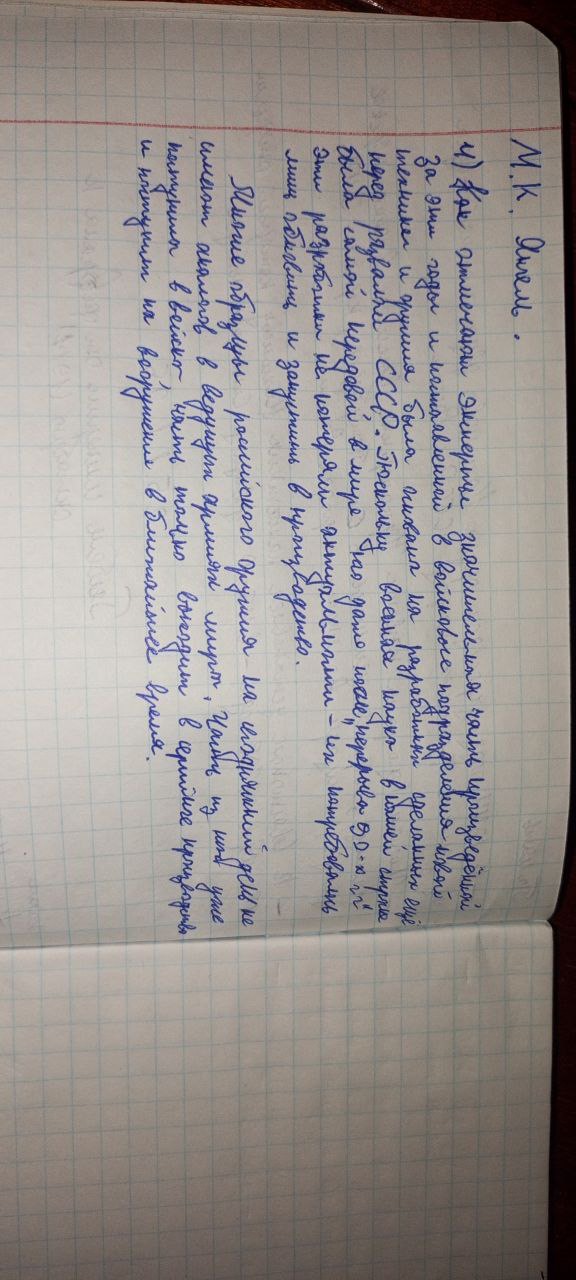 М.К. Ягель.
4) Как отмечают эксперты значительная часть произведённой
за эти годы и поставленной в войсковые подразделения новой
техники и оружия была основана на разработках сделанных ещё
перед развалом СССР. Поскольку военная наука в нашей стране
была самой передовой в мире, то даже после „перерыва 90-х гг"
эти разработки не потеряли актуальности – их потребовалось
лишь обновить и запустить в производство.
Многие образцы российского оружия на сегодняшний день не
имеют аналогов в ведущих армиях мира. Часть из них уже
поступила в войска часть только выходит в серийное производство
и поступит на вооружение в ближайшее время.